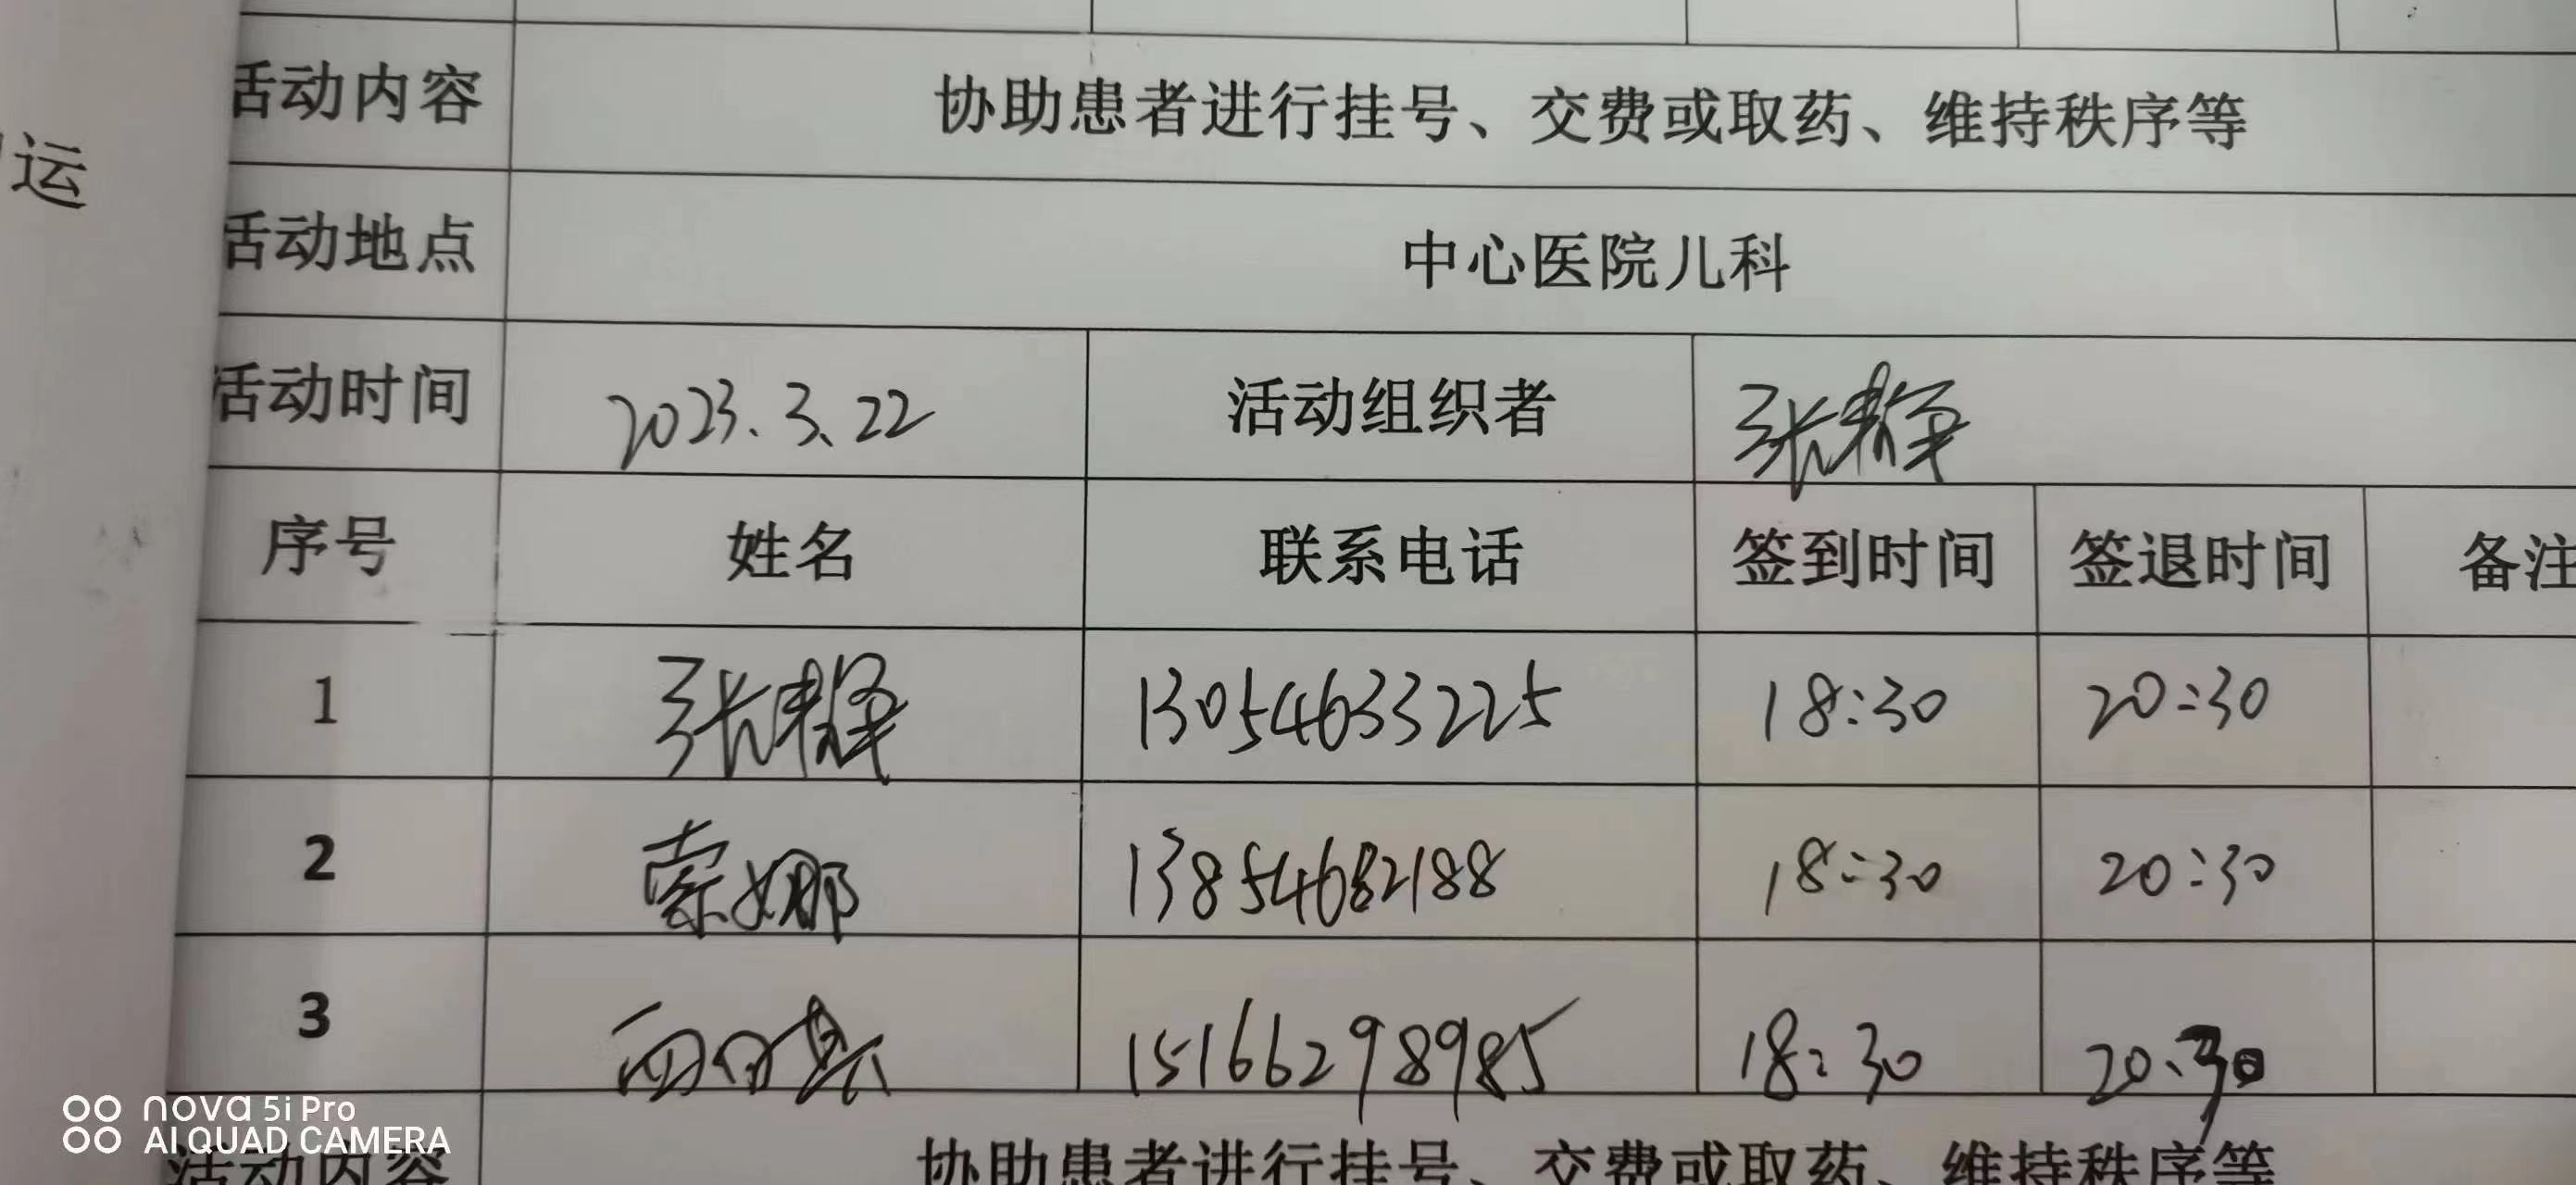 运
活动内容 协助患者进行挂号、交费或取药、维持秩序等
活动地点 中心医院儿科
活动时间 2023.3.22 活动组织者 张静
序号 姓名 联系电话 签到时间 签退时间 备注
1 张静 13054633225 18:30 20:30
2 索娜 13854682188 18:30 20:30
3 15166298985 18:30 20:30
活动内容 协助患者进行挂号、交费或取药、维持秩序等
nova 5i Pro
AI QUAD CAMERA